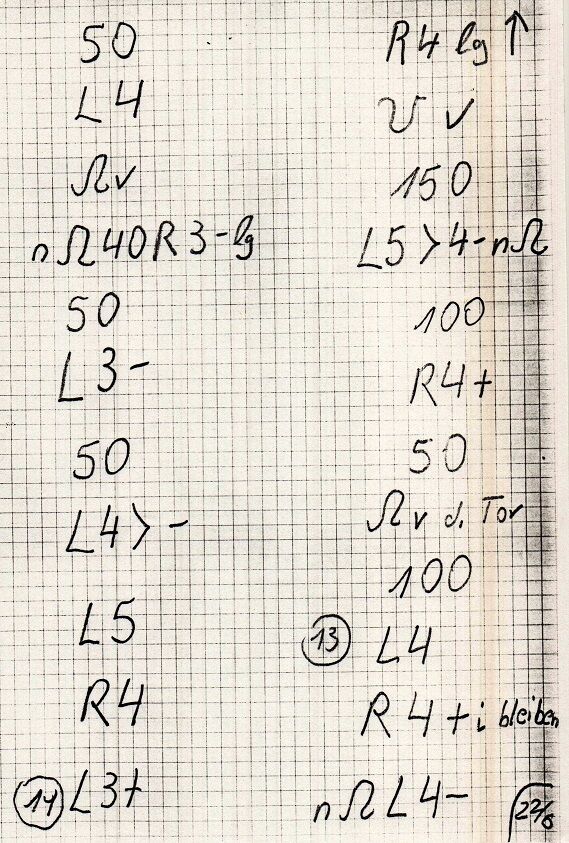 50
L4
Ωv
nΩ40R3-lg
50
L3-
50
L4>-
L5
R4
14 L3+
R4 lg ↑
v
150
L5>4-nΩ
100
R4+
50
Ω v d. Tor
100
13 L4
R4+i bleiben
nΩL4-